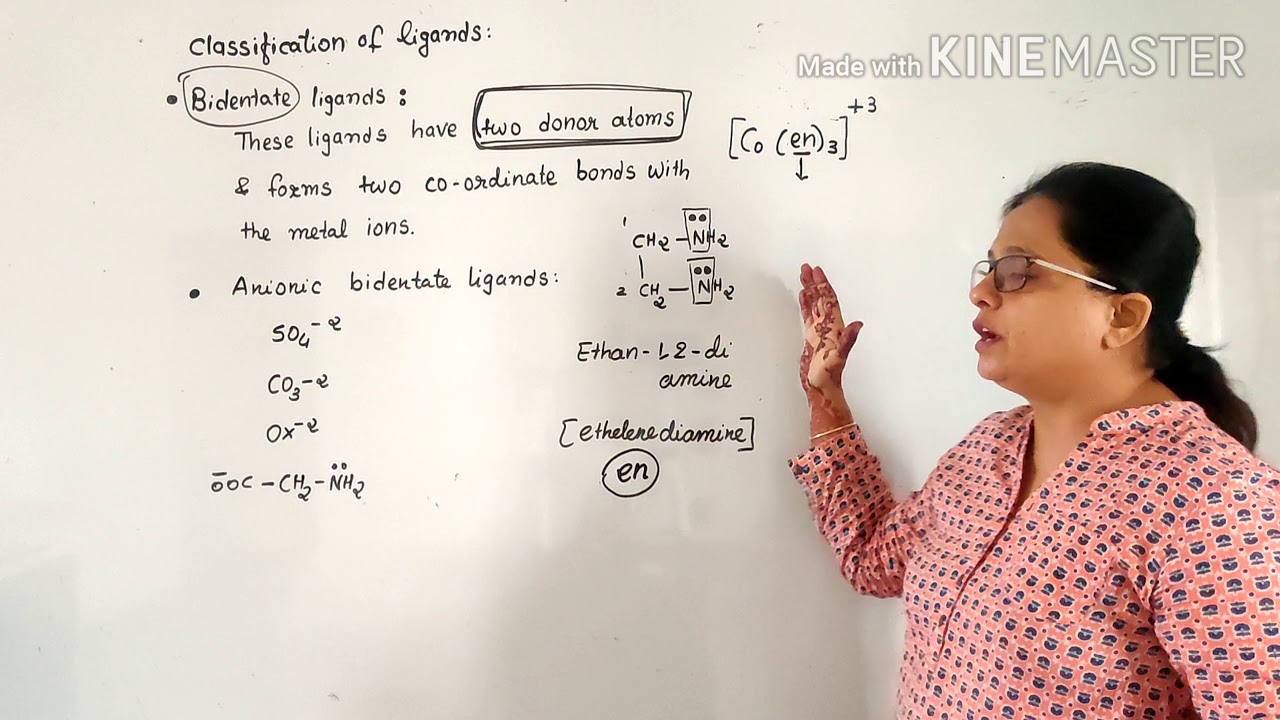 Made with KINEMASTER
Classification of ligands:
• Bidentate ligands :
These ligands have two donor atoms
& forms two co-ordinate bonds with
the metal ions.
• Anionic bidentate ligands:
SO₄⁻²
CO₃⁻²
Ox⁻²
ōOC – CH₂ – N̈H₂
[Co (en)₃]⁺³
↓
1 CH₂ – N̈H₂
|
2 CH₂ – N̈H₂
Ethan-1,2-di
amine
[ethelenediamine]
en